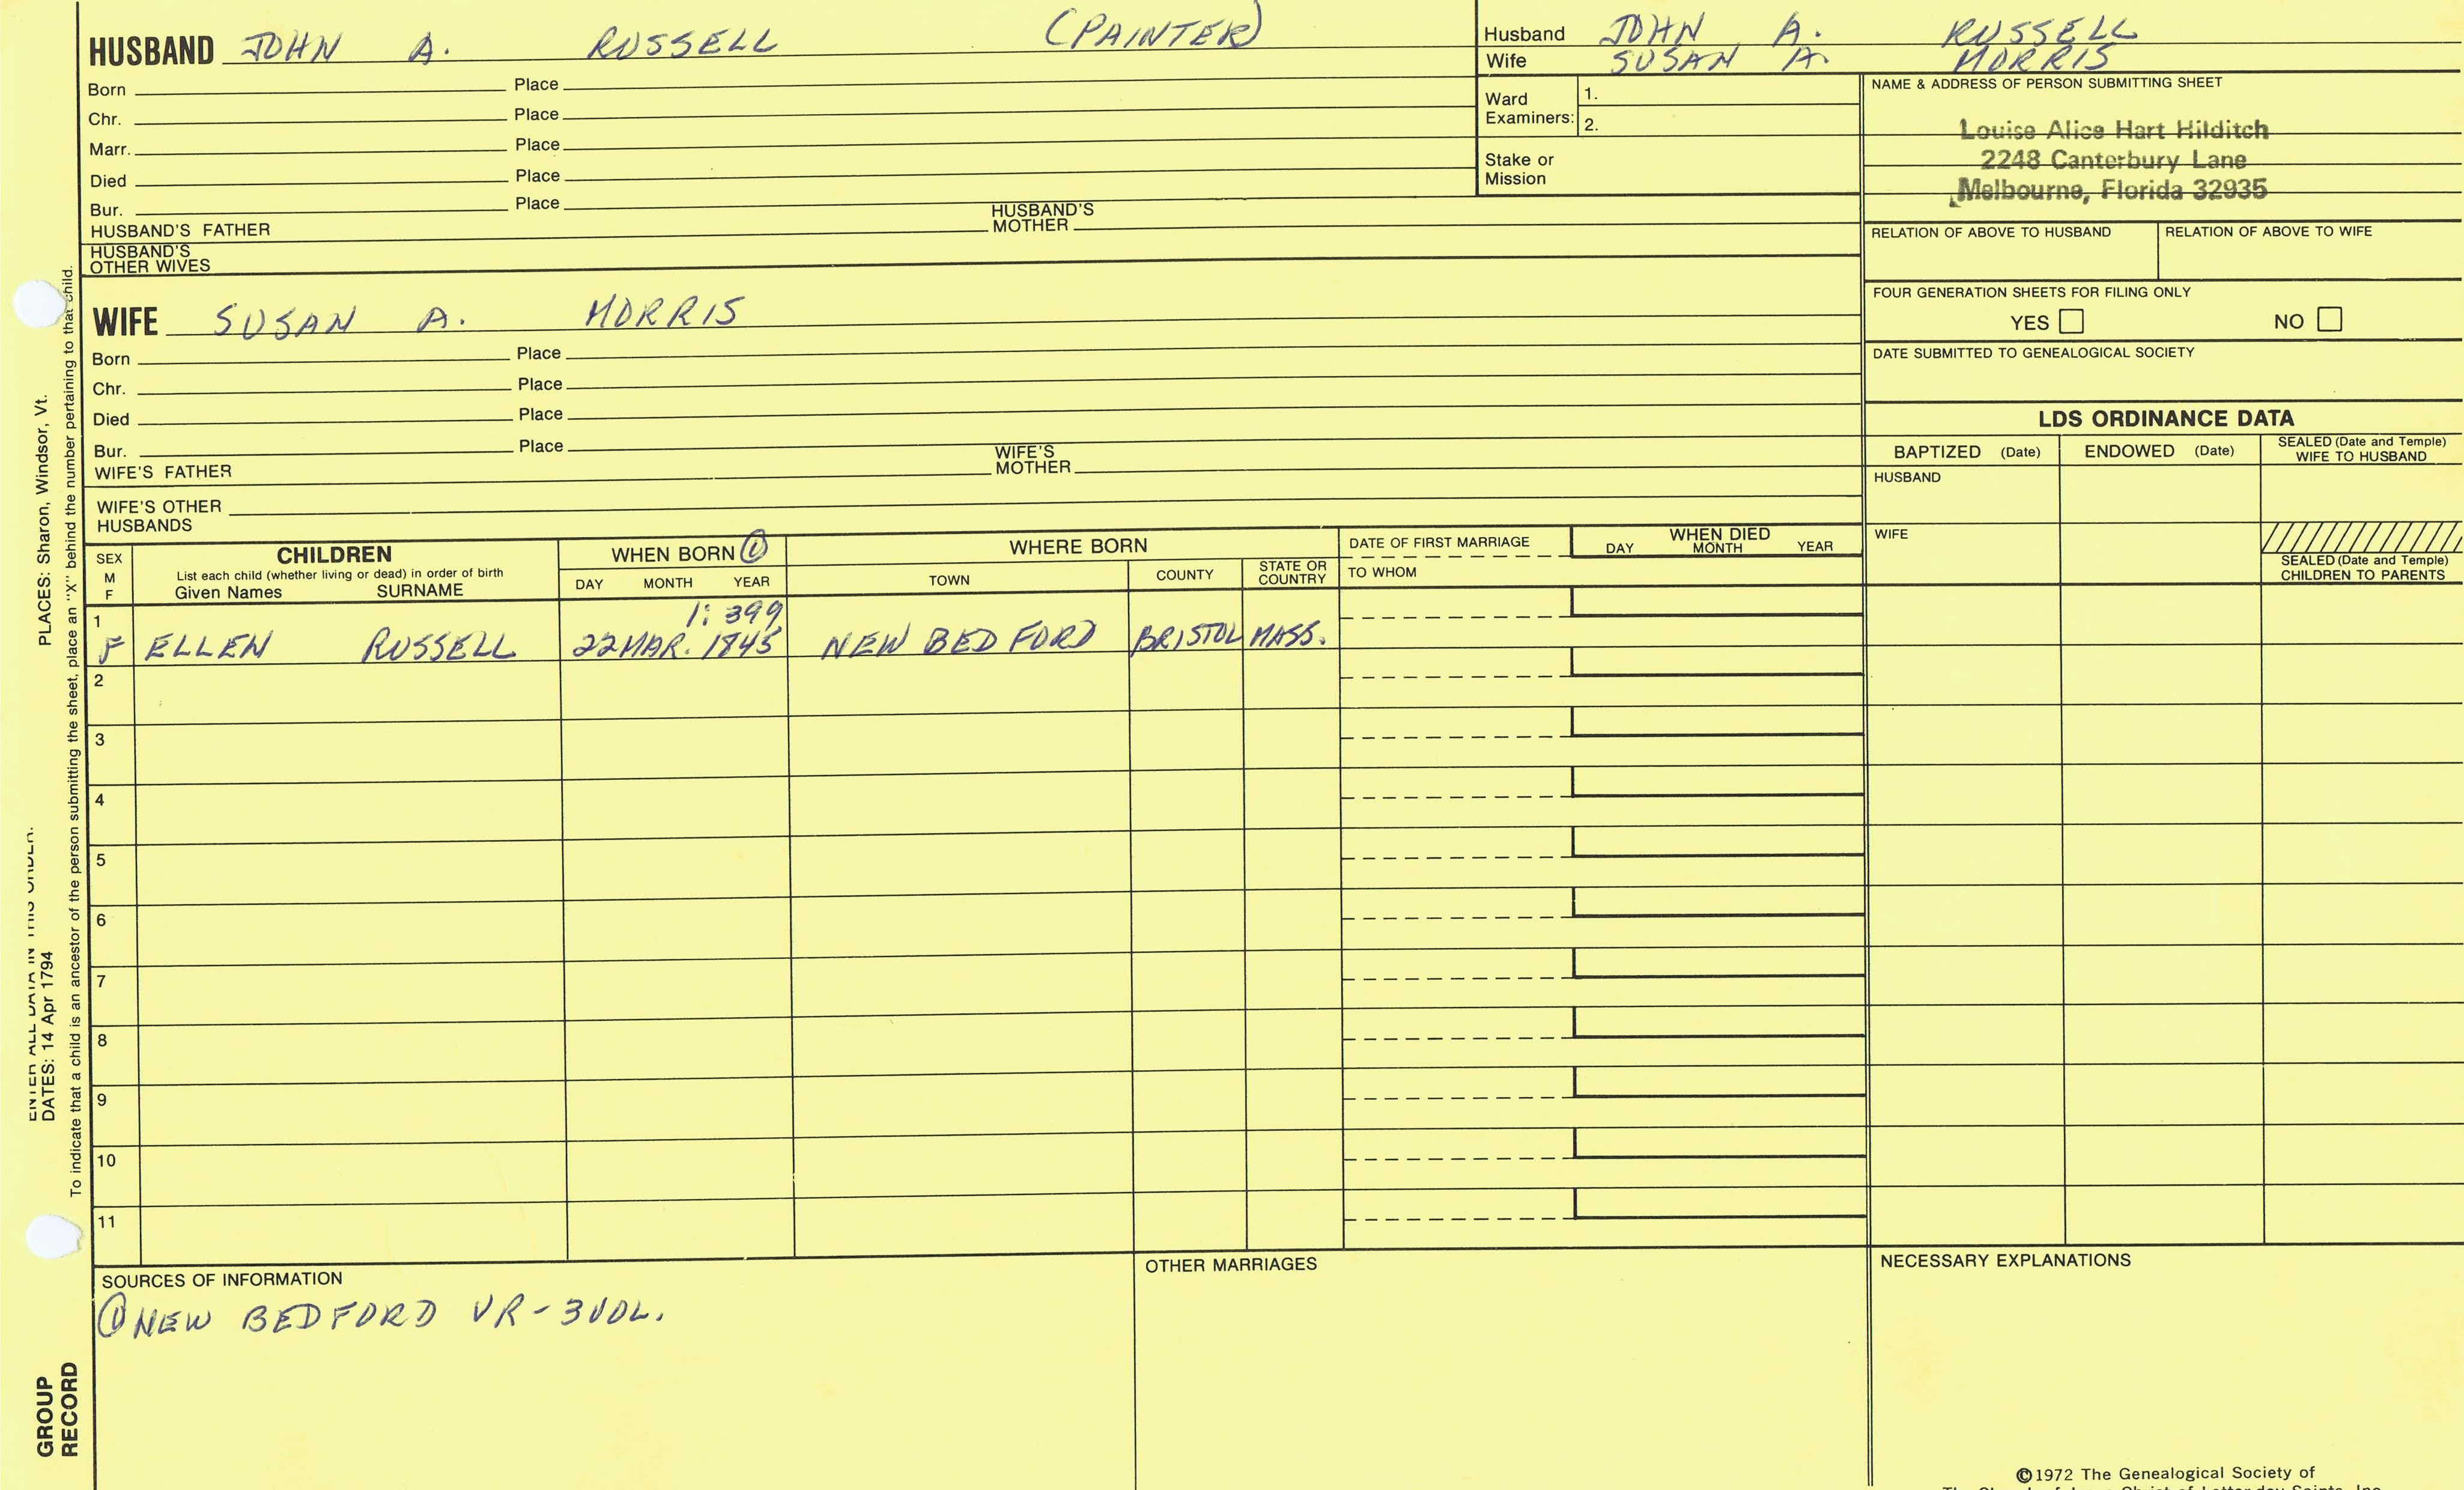 HUSBAND JOHN A. RUSSELL (PAINTER)
Born Place
Chr. Place
Marr. Place
Died Place
Bur. Place
HUSBAND'S FATHER HUSBAND'S MOTHER
HUSBAND'S OTHER WIVES
Husband JOHN A. RUSSELL
Wife SUSAN A. MORRIS
Ward Examiners: 1.
2.
Stake or Mission
NAME & ADDRESS OF PERSON SUBMITTING SHEET
Louise Alice Hart Hilditch
2248 Canterbury Lane
Melbourne, Florida 32935
RELATION OF ABOVE TO HUSBAND RELATION OF ABOVE TO WIFE
FOUR GENERATION SHEETS FOR FILING ONLY
YES NO
DATE SUBMITTED TO GENEALOGICAL SOCIETY
WIFE SUSAN A. MORRIS
Born Place
Chr. Place
Died Place
Bur. Place
WIFE'S FATHER WIFE'S MOTHER
WIFE'S OTHER HUSBANDS
LDS ORDINANCE DATA
BAPTIZED (Date) ENDOWED (Date) SEALED (Date and Temple) WIFE TO HUSBAND
HUSBAND
WIFE
SEALED (Date and Temple) CHILDREN TO PARENTS
SEX M F
CHILDREN
List each child (whether living or dead) in order of birth
Given Names SURNAME
WHEN BORN ①
DAY MONTH YEAR
WHERE BORN
TOWN COUNTY STATE OR COUNTRY
DATE OF FIRST MARRIAGE
TO WHOM
WHEN DIED
DAY MONTH YEAR
1 1: 399
F ELLEN RUSSELL 22 MAR. 1845 NEW BEDFORD BRISTOL MASS.
2
3
4
5
6
7
8
9
10
11
SOURCES OF INFORMATION
① NEW BEDFORD VR - 3 VOL.
OTHER MARRIAGES
NECESSARY EXPLANATIONS
©1972 The Genealogical Society of
The Church of Jesus Christ of Latter-day Saints, Inc.
ENTER ALL DATA IN THIS ORDER:
DATES: 14 Apr 1794 PLACES: Sharon, Windsor, Vt.
To indicate that a child is an ancestor of the person submitting the sheet, place an "X" behind the number pertaining to that child.
GROUP
RECORD